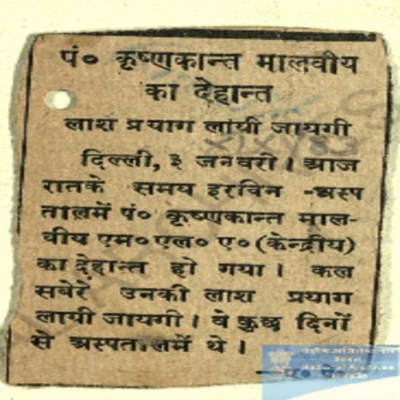 पं० कृष्णकान्त मालवीय
का देहान्त
लाश प्रयाग लायी जायगी
दिल्ली, ३ जनवरी । आज
रातके समय इरविन -अस्प
तालमें पं० कृष्णकान्त माल-
वीय एम० एल० ए० (केन्द्रीय)
का देहान्त हो गया । कल
सबेरे उनकी लाश प्रयाग
लायी जायगी । वे कुछ दिनों
से अस्पतालमें थे ।